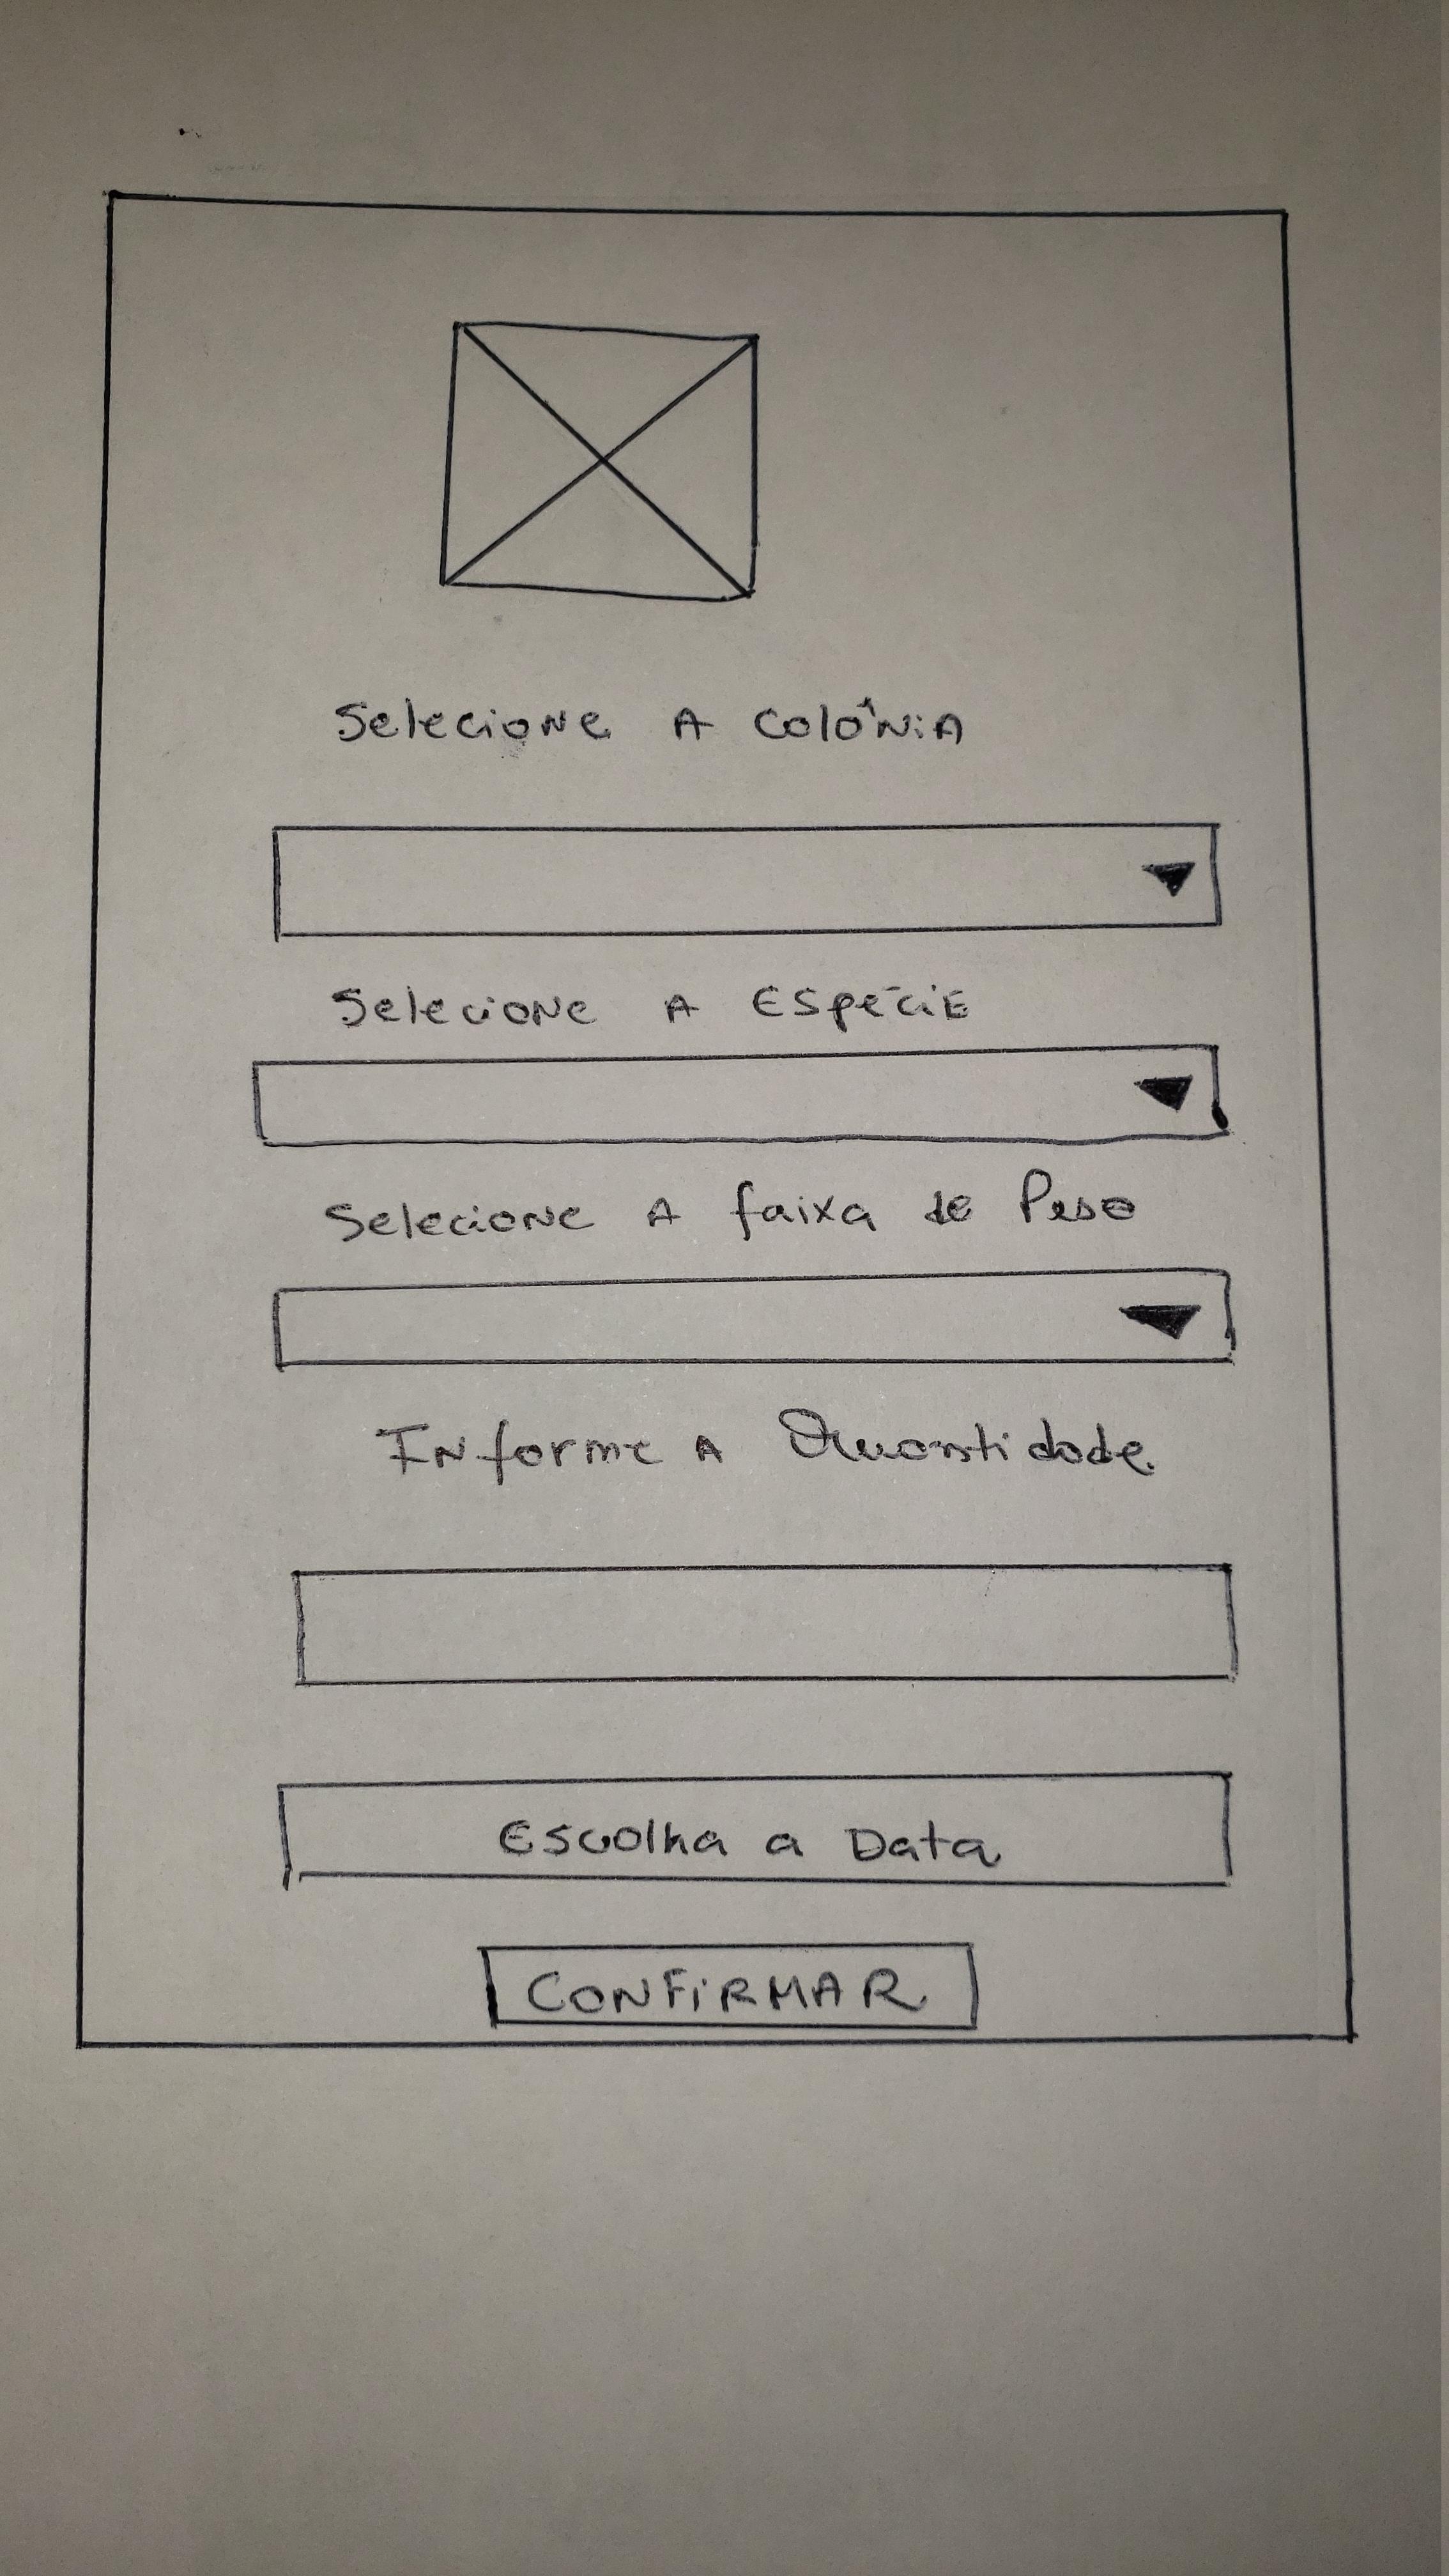 Selecione A Colônia
Selecione A Espécie
Selecione A faixa de Peso
Informe A Quantidade
Escolha a Data
CONFiRMAR